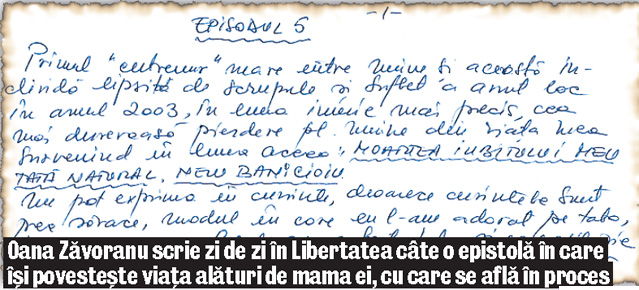 EPISODUL 5
-1-
Primul "cutremur" mare între mine și această in-
dividă lipsită de scrupule și suflet a avut loc
în anul 2003, în luna iunie mai precis, cea
mai dureroasă pierdere pt. mine din viața mea
survenind în luna aceea: MOARTEA IUBITULUI MEU
TATĂ NATURAL, NELU BANICIOIU
Nu pot exprima în cuvinte, deoarece cuvintele sunt
prea sărace, modul în care eu l-am adorat pe tata,
Oana Zăvoranu scrie zi de zi în Libertatea câte o epistolă în care
își povestește viața alături de mama ei, cu care se află în proces